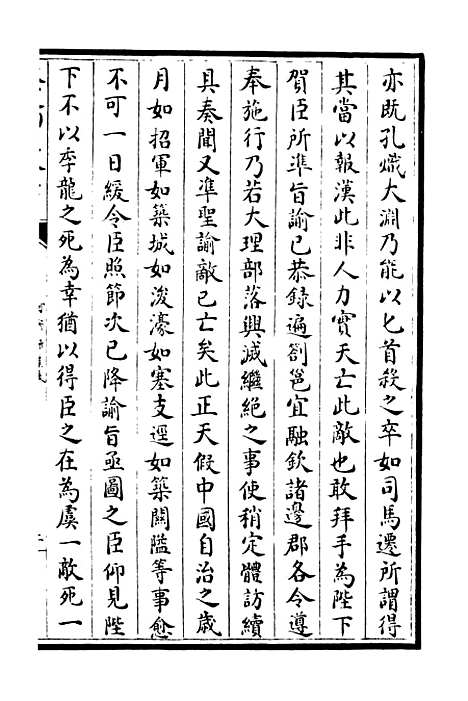 亦既孔熾大淵乃能以匕首殺之卒如司馬遷所謂得
其當以報漢此非人力實天亡此敵也敢拜手為陛下
賀臣所準旨諭已恭錄遍劄邕宜融欽諸邊郡各令遵
奉施行乃若大理部落興滅繼絕之事使稍定體訪續
具奏聞又準聖諭敵已亡矣此正天假中國自治之歲
月如招軍如築城如浚濠如塞支逕如築關隘等事愈
不可一日緩令臣照節次已降諭旨亟圖之臣仰見陛
下不以季龍之死為幸猶以得臣之在為虞一敵死一